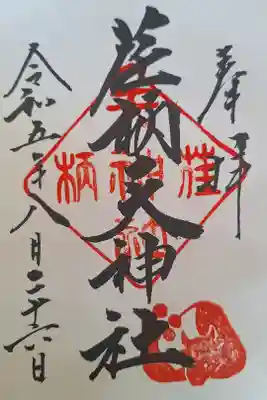 奉拝
荏柄天神社
令和五年八月二十六日